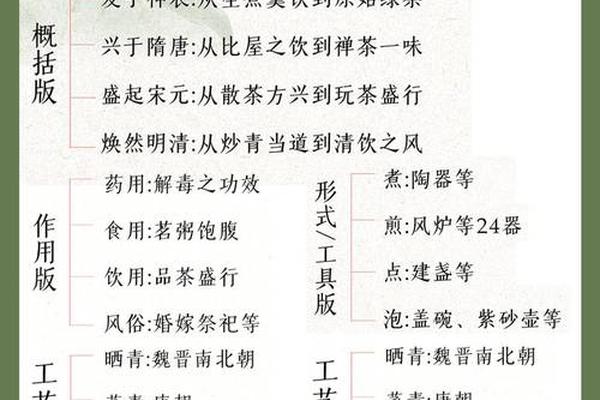 概括版
发于神农:从生煮羹饮到原始绿茶
兴于隋唐:从比屋之饮到禅茶一味
盛起宋元:从散茶方兴到玩茶盛行
焕然明清:从炒青当道到清饮之风
作用版
药用:解毒之功效
食用:茗粥饱腹
饮用:品茶盛行
风俗:婚嫁祭祀等
形式/工具版
煮:陶器等
煎:风炉等24器
点:建盏等
泡:盖碗、紫砂壶等
工艺
晒青:魏晋南北朝
蒸青:唐朝
工艺
晒青:魏晋南北朝
蒸青:唐朝